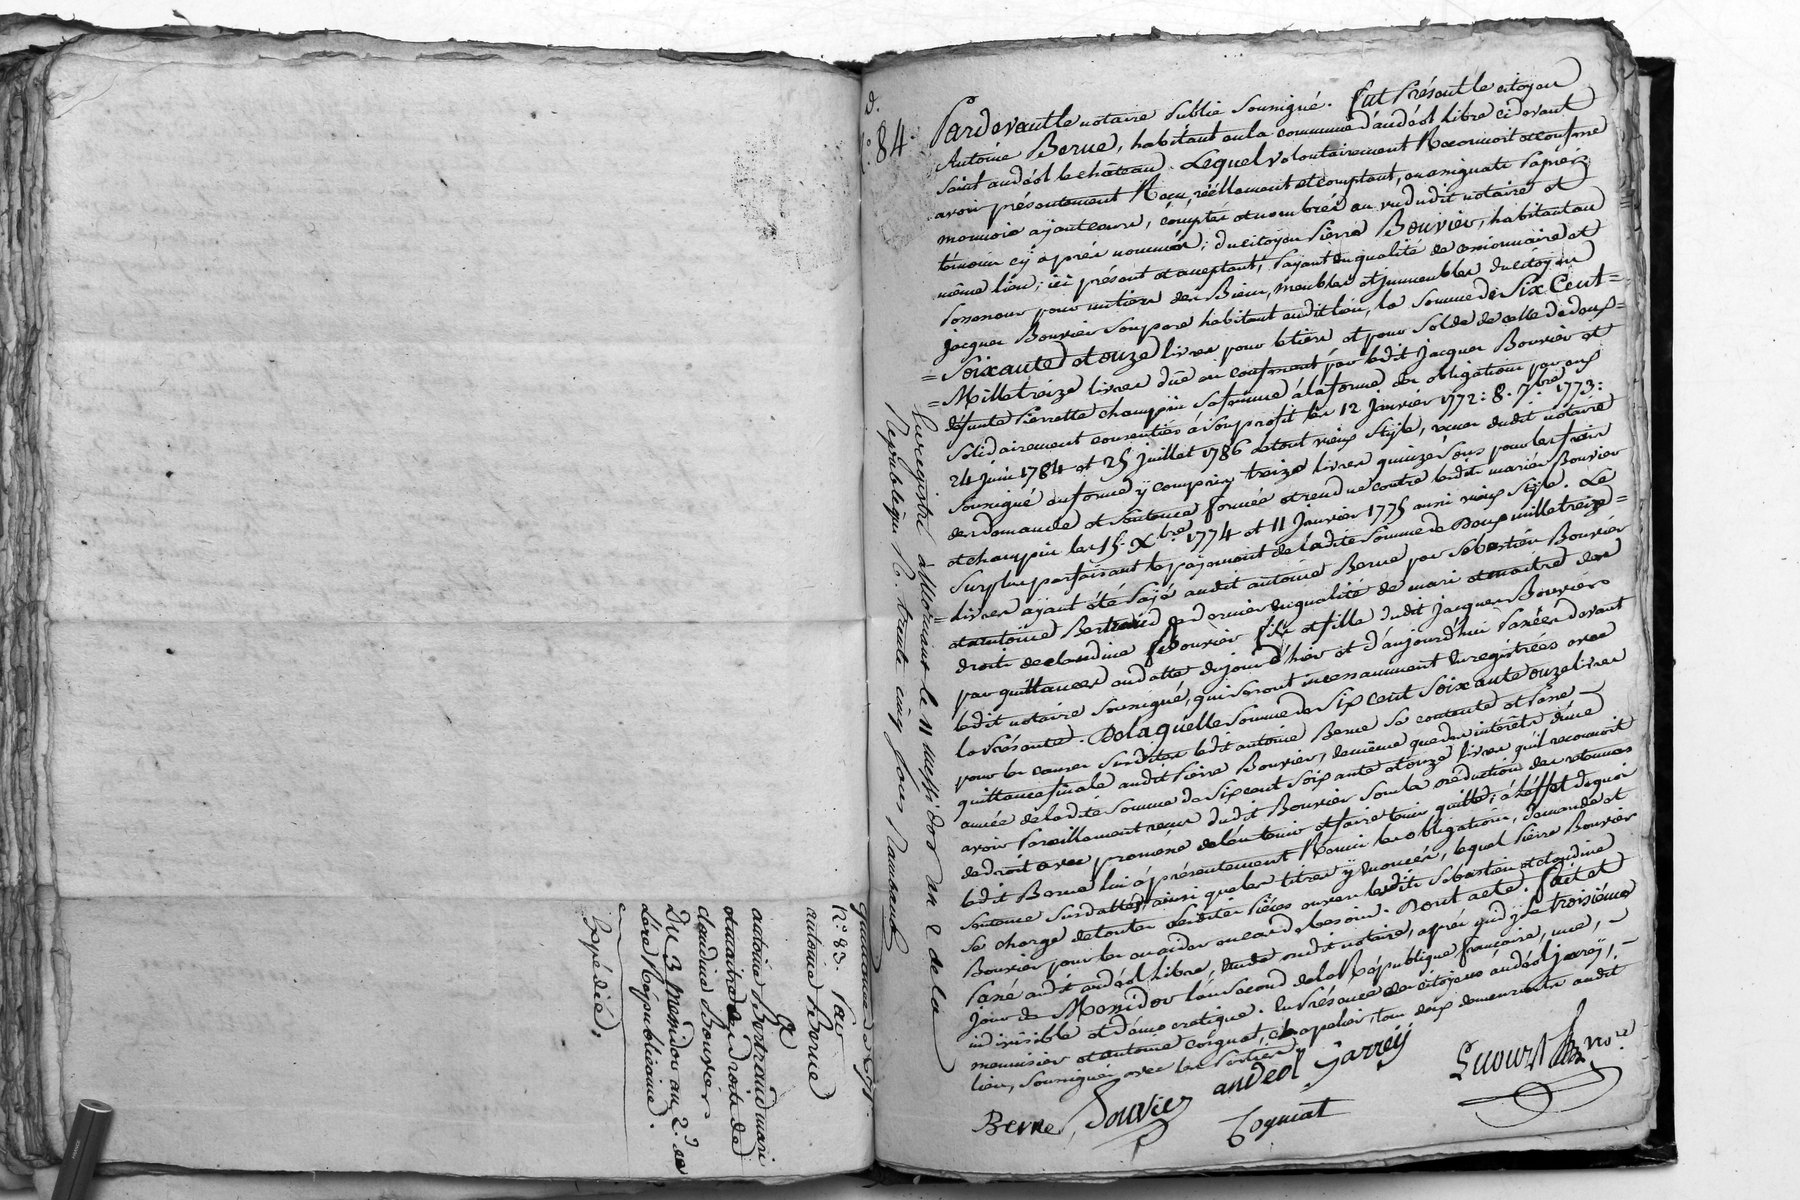 quittance de 671#.
N.° 83. Par
antoine Berne
à
antoine Bertraud mari
et maitre des droits de
claudine Bouvier
Du 3 messidor an 2.d de
l'ère Républicaine.
Expédiée.
d.
N.° 84.
Pardevant le notaire Public soussigné. fut Présent le citoyen
Antoine Berne, habitant en la commune d'andéol libre ci devant
saint andéol le château Lequel volontairement Reconnoit et confesse
avoir présentement Reçu, réellement et comptant, en assignats papier
monnoie ayant cours, comptés et nombrés au vu dudit notaire et
témoins cy après nommés; du citoyen Pierre Bouvier, habitant au
même lieu, ici présent et acceptant, Payant en qualité de cessionnaire et
Possesseur pour un tiers des Biens, meubles et immeubles du citoyen
jacques Bouvier son pere habitant audit lieu, la somme de Six Cent =
= Soixante et onze livres pour le tiers et pour solde de celle de deux =
= Mille treize livres düe au confessant par ledit jacques Bouvier et
défunte Pierrette champin sa femme à la forme des obligations par eux
solidairement consenties à son profit les 12 janvier 1772: 8. 7.bre 1773:
24 juin 1784 et 25 juillet 1786 le tout vieux style, reçues dudit notaire
soussigné en forme y compris treize livres quinze sous pour les frais
des demande et sentence formée et rendue contre lesdits mariés Bouvier
et champin les 15. Xbre 1774 et 11 janvier 1775 aussi vieux style. Le
surplus parfaisant le payement de ladite somme de Deux mille treize =
= Livres ayant été payé audit antoine Berne par sebastien Bouvier
et antoine Bertraud ce dernier en qualité de mari et maitre des
droits de claudine Bouvier fils et fille dudit jacques Bouvier
par quittances en datte du jour d'hier et d'aujourd'hui Passées devant
ledit notaire soussigné, qui seront incessamment Enregistrées avec
la Présente. De laquelle somme de six cent soixante onze livres
pour les causes susdites ledit antoine Berne se contente et passe
quittance finale audit Pierre Bouvier, de même que des intérêts d'une
année de ladite somme de six cent soixante et onze livres qu'il reconnoit
avoir Pareillement reçus dudit Bouvier sous la réduction des retenues
de droit avec promesse de l'en tenir et faire tenir quitte, à l'effet de quoi
ledit Berne lui a présentement Remis les obligations, demande et
sentence susdattées ainsi que les titres y énoncés, lequel Pierre Bouvier
se charge de toutes lesdites Pièces envers lesdits sébastien et claudine
Bouvier pour les en aider en cas de besoin. Dont acte. fait et
Passé audit andéol libre, Etude dudit notaire, après midy le troisième
jour de Messidor l'an second de la République française, une,
indivisible et démocratique. En Présence des citoyens andéol jarrey,
menuisier et antoine coignat, chapelier, tous deux demeurants audit
lieu, soussignés avec les Parties
Berne Bouvier andéol Jarreÿ
Cogniat
Enregistré à Mornant le 11 messidor an 2 de la
Republique R. trente cinq sous